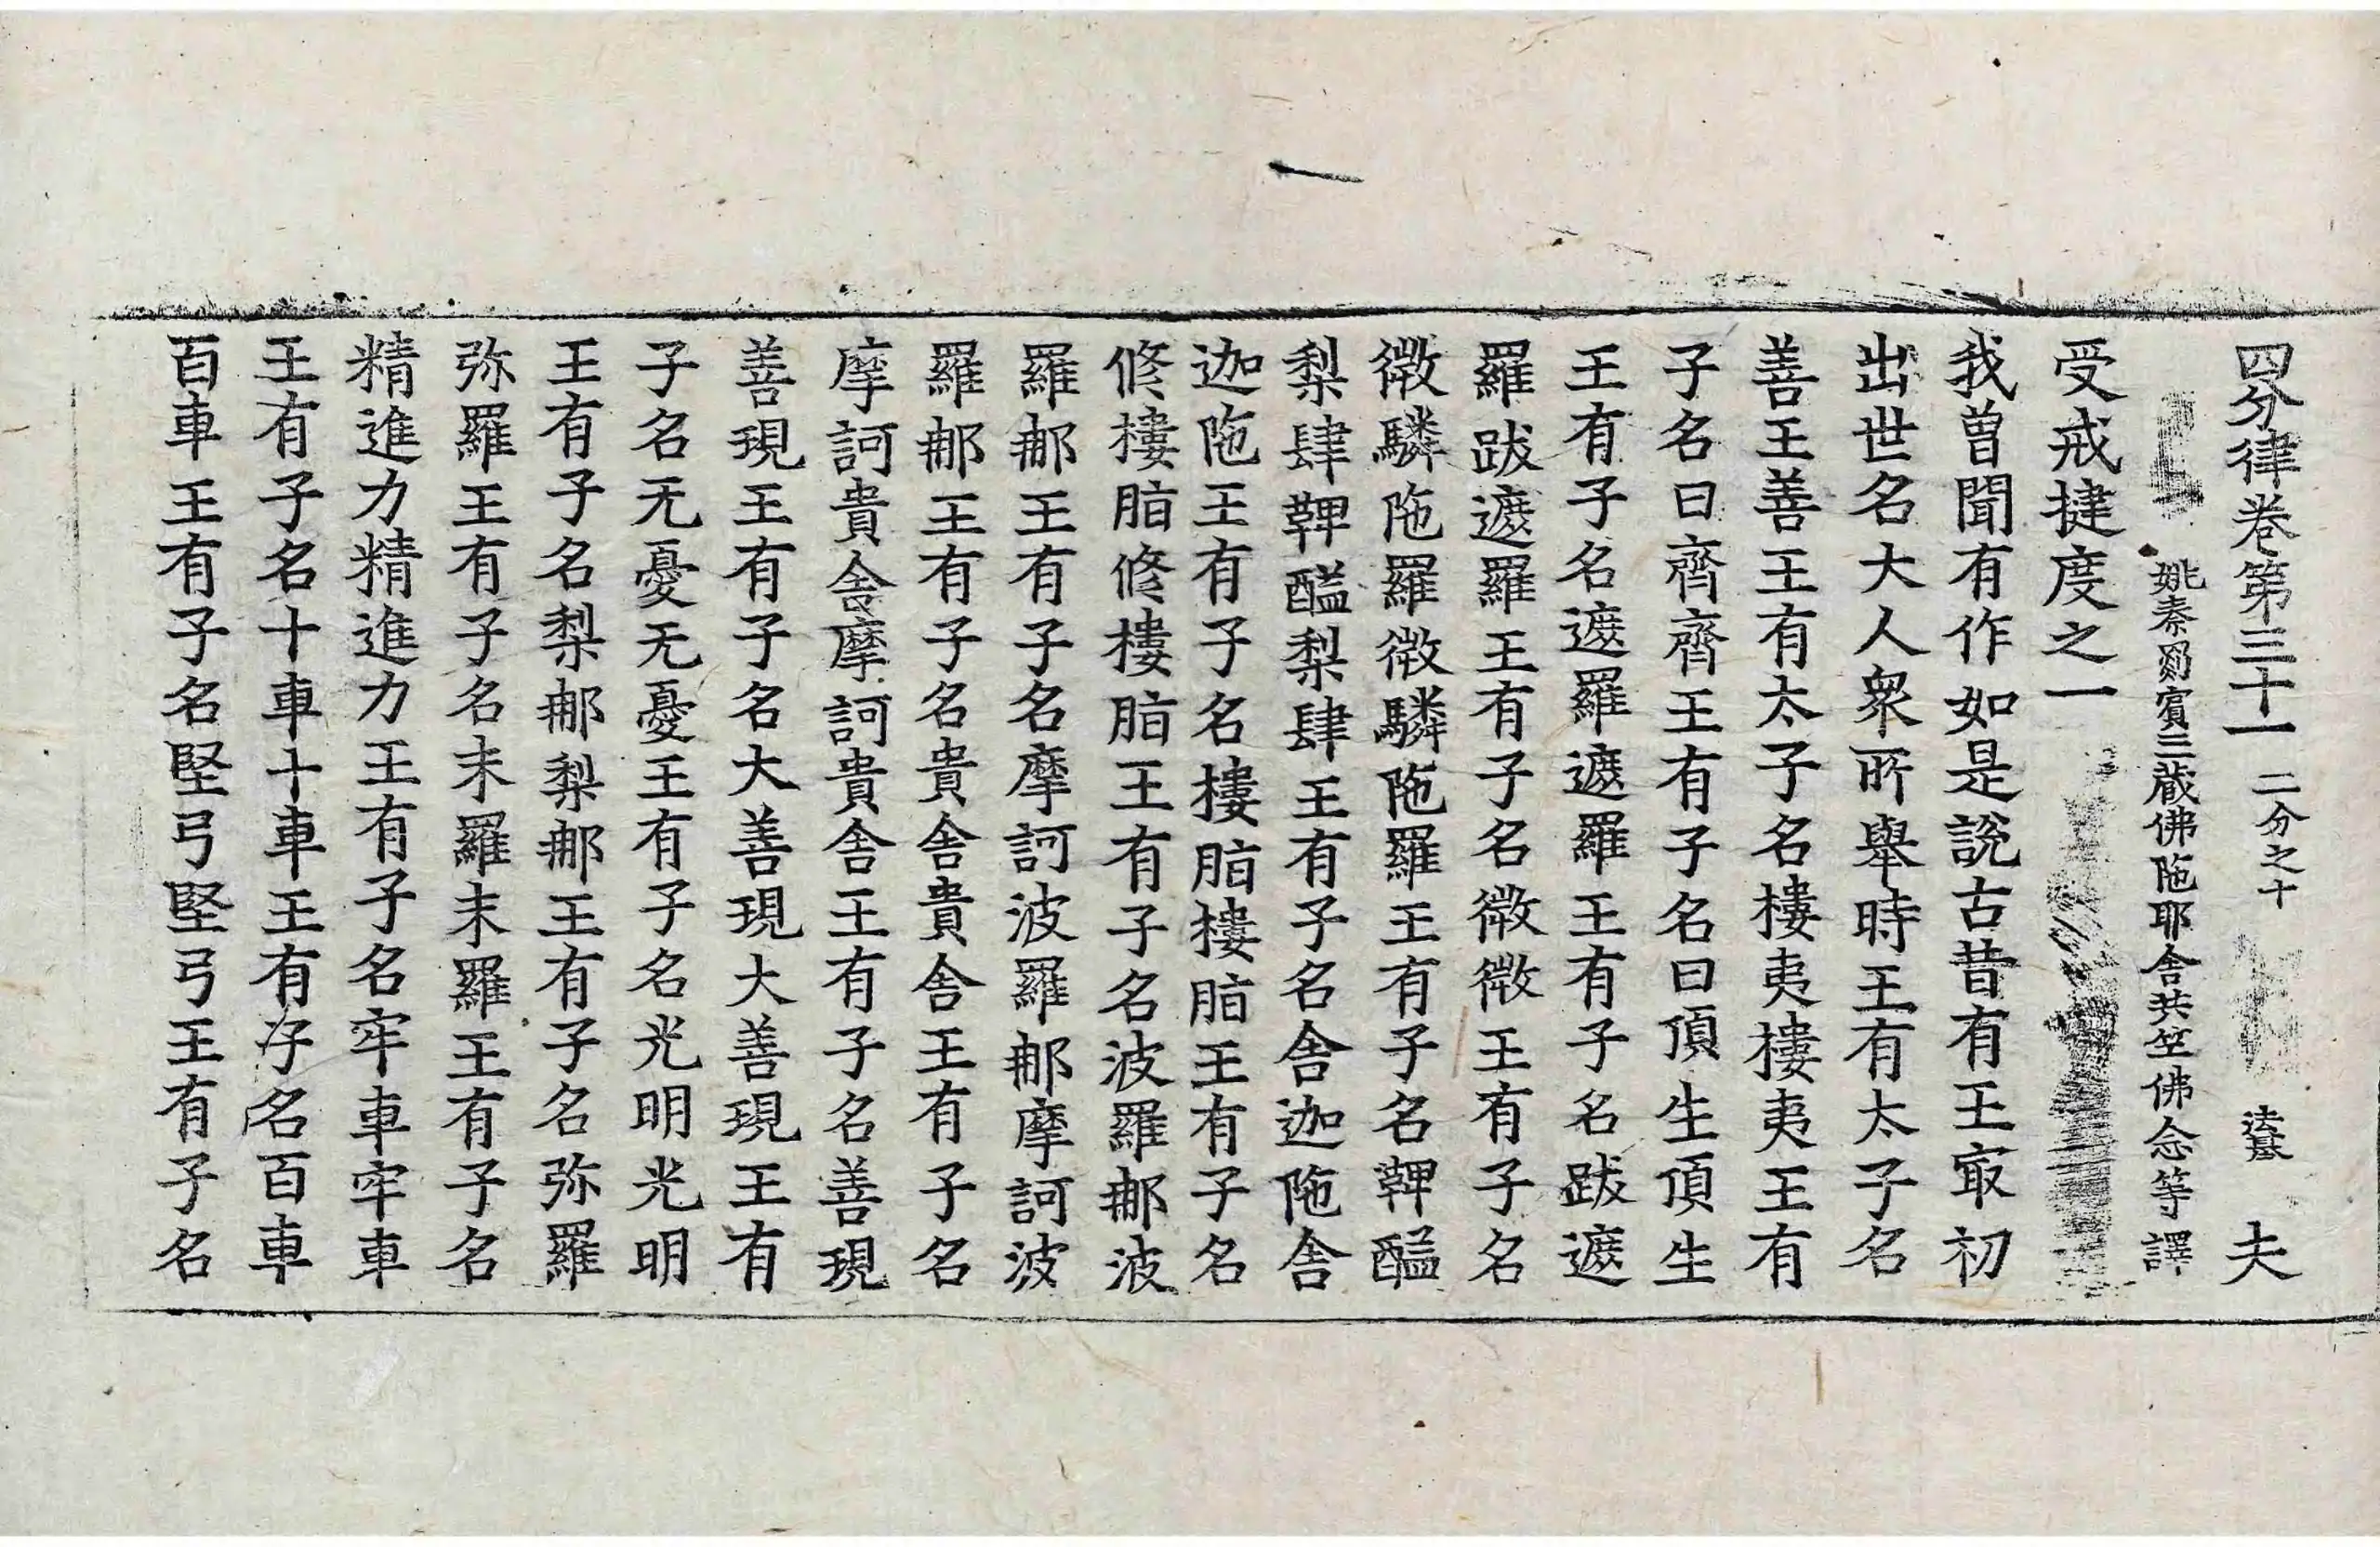 四分律卷第三十一 二分之十 夫
姚秦罽賓三藏佛陁耶舍共竺佛念等譯
受戒揵度之一
我曾聞有作如是說古昔有王㝡初
出世名大人衆所舉時王有太子名
善王善王有太子名樓夷樓夷王有
子名曰齊齊王有子名曰頂生頂生
王有子名遮羅遮羅王有子名跋遮
羅跋遮羅王有子名微微王有子名
微驎陁羅微驎陁羅王有子名鞞醯
梨肆鞞醯梨肆王有子名舍迦陁舍
迦陁王有子名樓脂樓脂王有子名
修樓脂修樓脂王有子名波羅那波
羅那王有子名摩訶波羅那摩訶波
羅那王有子名貴舍貴舍王有子名
摩訶貴舍摩訶貴舍王有子名善現
善現王有子名大善現大善現王有
子名无憂无憂王有子名光明光明
王有子名梨那梨那王有子名弥羅
弥羅王有子名末羅末羅王有子名
精進力精進力王有子名牢車牢車
王有子名十車十車王有子名百車
百車王有子名堅弓堅弓王有子名